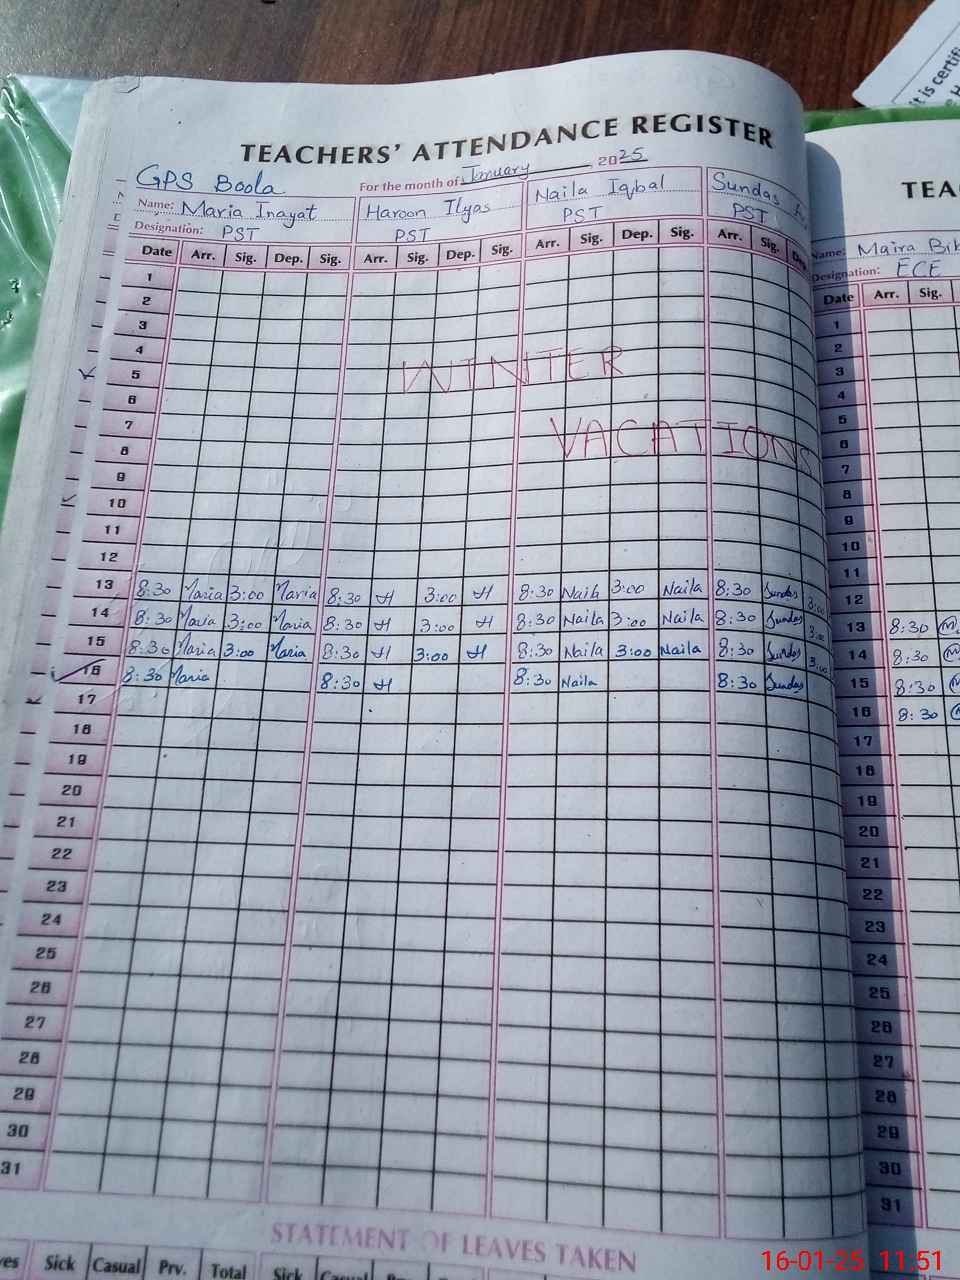 it is certifi
TEACHERS' ATTENDANCE REGISTER
GPS Boola
For the month of January, 2025
Name: Maria Inayat
Designation: PST
Haroon Ilyas
PST
Naila Iqbal
PST
Sundas
PST
Date Arr. Sig. Dep. Sig. Arr. Sig. Dep. Sig. Arr. Sig. Dep. Sig. Arr. Sig. Dep
1
2
3
4
5
6
7
8
9
10
11
12
WINTER
VACATIONS
13 8:30 Maria 3:00 Maria 8:30 H 3:00 H 8:30 Naila 3:00 Naila 8:30 Sundas 3:00
14 8:30 Maria 3:00 Maria 8:30 H 3:00 H 8:30 Naila 3:00 Naila 8:30 Sundas 3:00
15 8:30 Maria 3:00 Maria 8:30 H 3:00 H 8:30 Naila 3:00 Naila 8:30 Sundas 3:00
16 8:30 Maria 8:30 H 8:30 Naila 8:30 Sundas
17
18
19
20
21
22
23
24
25
26
27
28
29
30
31
STATEMENT OF LEAVES TAKEN
Sick Casual Prv. Total Sick Casual
TEA
Name: Maira Bib
Designation: ECE
Date Arr. Sig.
1
2
3
4
5
6
7
8
9
10
11
12
13 8:30
14 8:30
15 8:30
16 8:30
17
18
19
20
21
22
23
24
25
26
27
28
29
30
31
16-01-25 11:51